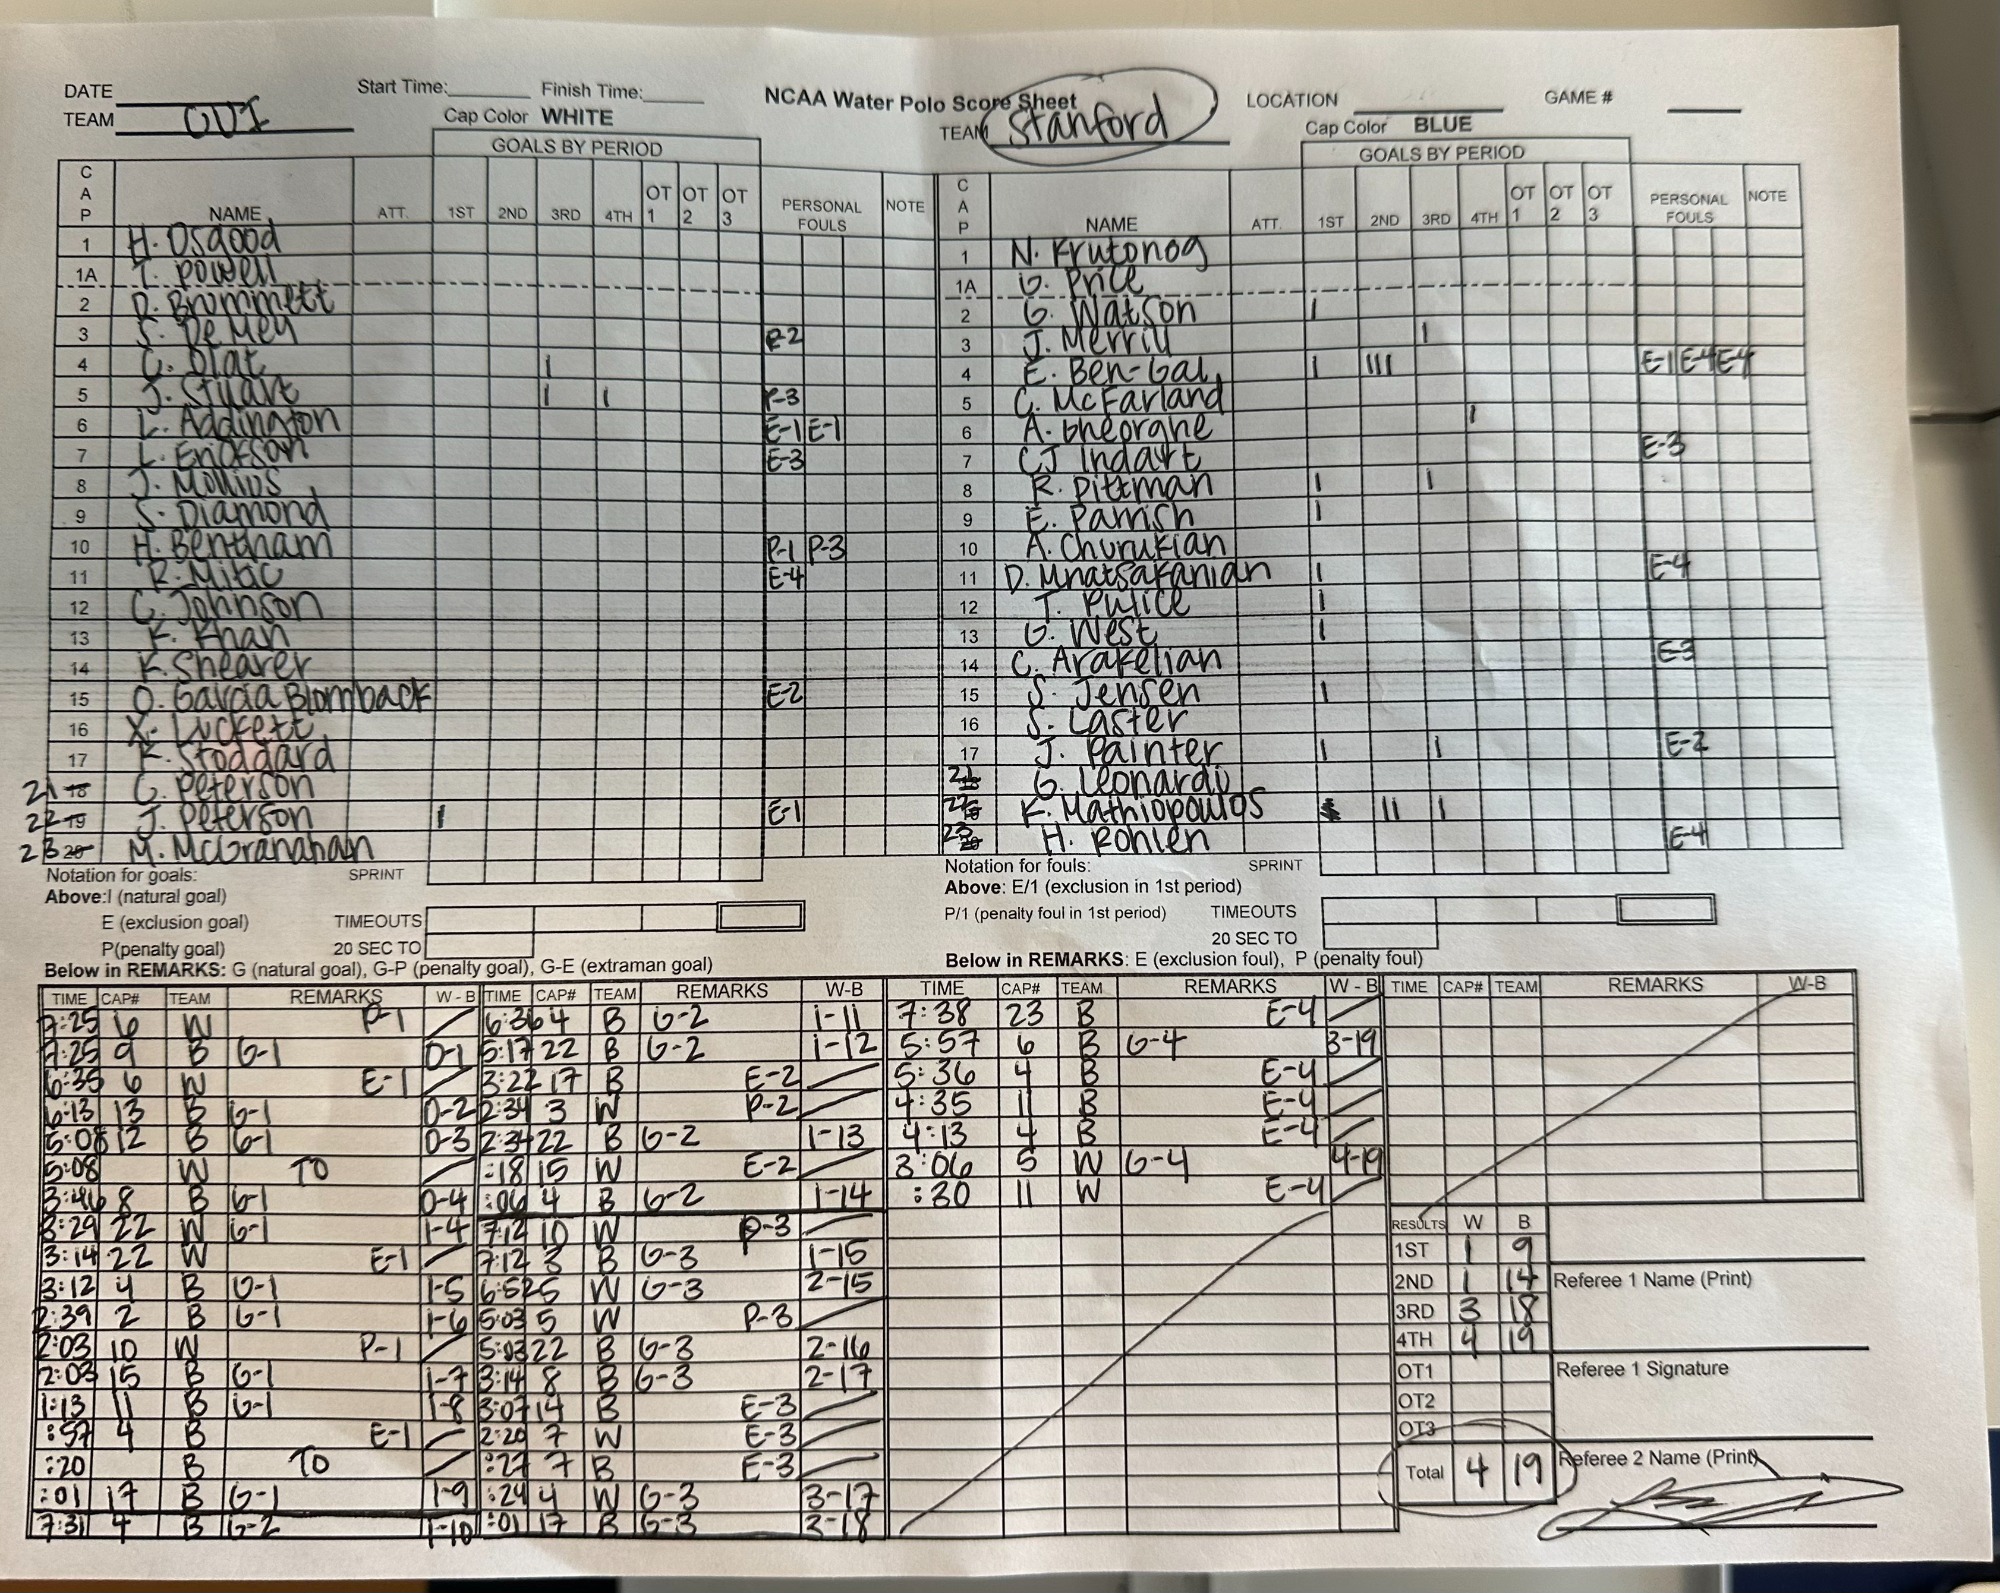 DATE Start Time: Finish Time: NCAA Water Polo Score Sheet LOCATION GAME #
TEAM Cap Color WHITE TEAM Stanford Cap Color BLUE
GOALS BY PERIOD GOALS BY PERIOD
CAP NAME ATT. 1ST 2ND 3RD 4TH OT 1 OT 2 OT 3 PERSONAL FOULS NOTE CAP NAME ATT. 1ST 2ND 3RD 4TH OT 1 OT 2 OT 3 PERSONAL FOULS NOTE
1 H. Osgood 1 N. Krutonog
1A T. Powell 1A G. Price
2 R. Brommett 2 G. Watson I
3 S. DeMey P-2 3 J. Merrill I
4 C. Olat I 4 E. Ben-Gal I III E-1 E-4 E-4
5 J. Stuart I I P-3 5 C. McFarland
6 L. Addington E-1 E-1 6 A. Gheorghe I
7 L. Erickson E-3 7 CJ Indart E-3
8 J. 8 R. Pittman I I
9 S. Diamond 9 E. Parrish I
10 H. Bentham P-1 P-3 10 A. Churukian
11 R. Mitic E-4 11 D. Mnatsakanian I E-4
12 C. Johnson 12 T. Pulice I
13 K. Khan 13 G. West I
14 K. Shearer 14 C. Arakelian E-3
15 O. Garcia Blomback E-2 15 S. Jensen I
16 X. Luckett 16 S. Laster
17 K. Stoddard 17 J. Painter I I E-2
21 18 C. Peterson 21 G. Leonardi
22 19 J. Peterson I E-1 22 K. Mathiopoulos II I
23 20 M. McGranahan 23 H. Rohlen E-4
Notation for goals: SPRINT Notation for fouls: SPRINT
Above:I (natural goal) Above: E/1 (exclusion in 1st period)
E (exclusion goal) TIMEOUTS P/1 (penalty foul in 1st period) TIMEOUTS
P(penalty goal) 20 SEC TO 20 SEC TO
Below in REMARKS: G (natural goal), G-P (penalty goal), G-E (extraman goal) Below in REMARKS: E (exclusion foul), P (penalty foul)
TIME CAP# TEAM REMARKS W - B TIME CAP# TEAM REMARKS W-B TIME CAP# TEAM REMARKS W - B TIME CAP# TEAM REMARKS W-B
7:25 6 W P-1 6:36 4 B G-2 1-11 7:38 23 B E-4
7:25 9 B G-1 0-1 5:17 22 B G-2 1-12 5:57 6 B G-4 3-19
6:35 6 W E-1 3:22 17 B E-2 5:36 4 B E-4
6:13 13 B G-1 0-2 2:34 3 W P-2 4:35 11 B E-4
5:08 12 B G-1 0-3 2:34 22 B G-2 1-13 4:13 4 B E-4
5:08 W TO :18 15 W E-2 3:06 5 W G-4 4-19
3:46 8 B G-1 0-4 :06 4 B G-2 1-14 :30 11 W E-4
3:29 22 W G-1 1-4 7:12 10 W P-3 RESULTS W B
3:14 22 W E-1 7:12 3 B G-3 1-15 1ST 1 9
3:12 4 B G-1 1-5 6:52 5 W G-3 2-15 2ND 1 14 Referee 1 Name (Print)
2:39 2 B G-1 1-6 5:03 5 W P-3 3RD 3 18
2:03 10 W P-1 5:03 22 B G-3 2-16 4TH 4 19
2:03 15 B G-1 1-7 3:14 8 B G-3 2-17 OT1 Referee 1 Signature
1:13 11 B G-1 1-8 3:07 14 B E-3 OT2
:57 4 B E-1 2:20 7 W E-3 OT3
:20 B TO :27 7 B E-3 Total 4 19 Referee 2 Name (Print)
:01 17 B G-1 1-9 :24 4 W G-3 3-17
7:31 4 B G-2 1-10 :01 17 B G-3 3-18